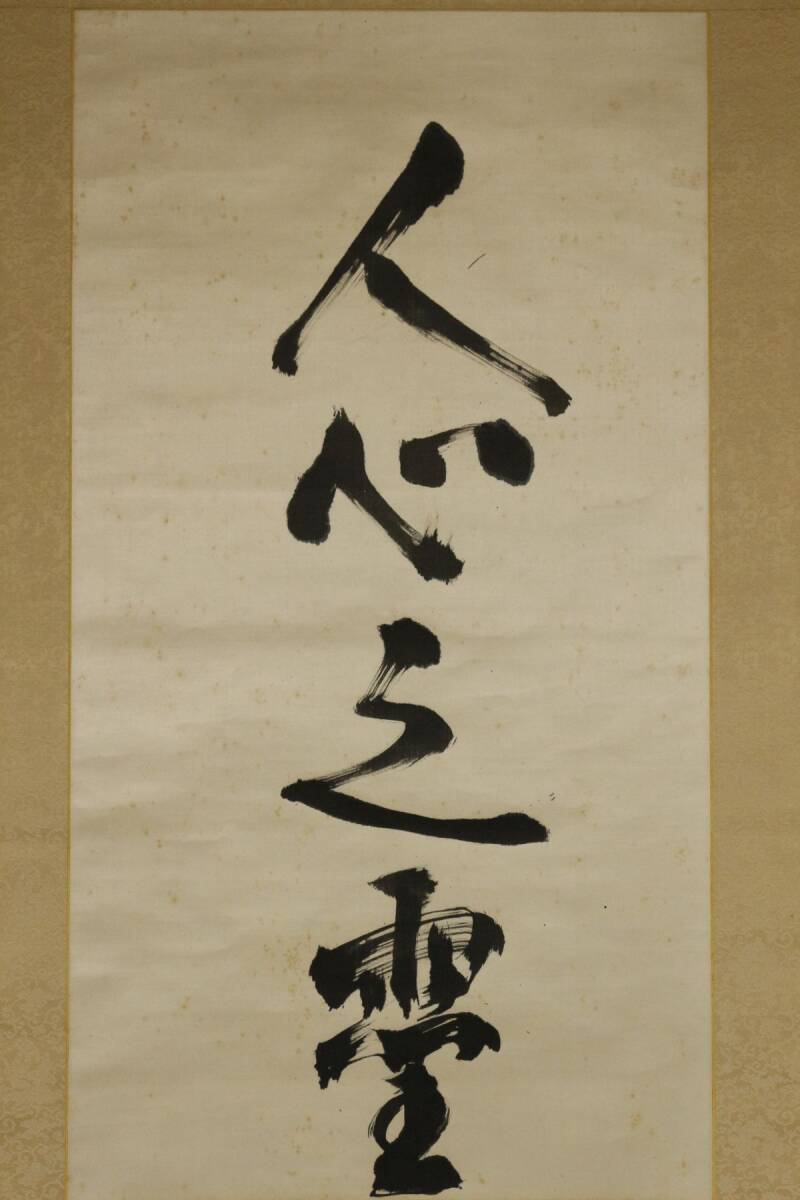 人心之靈